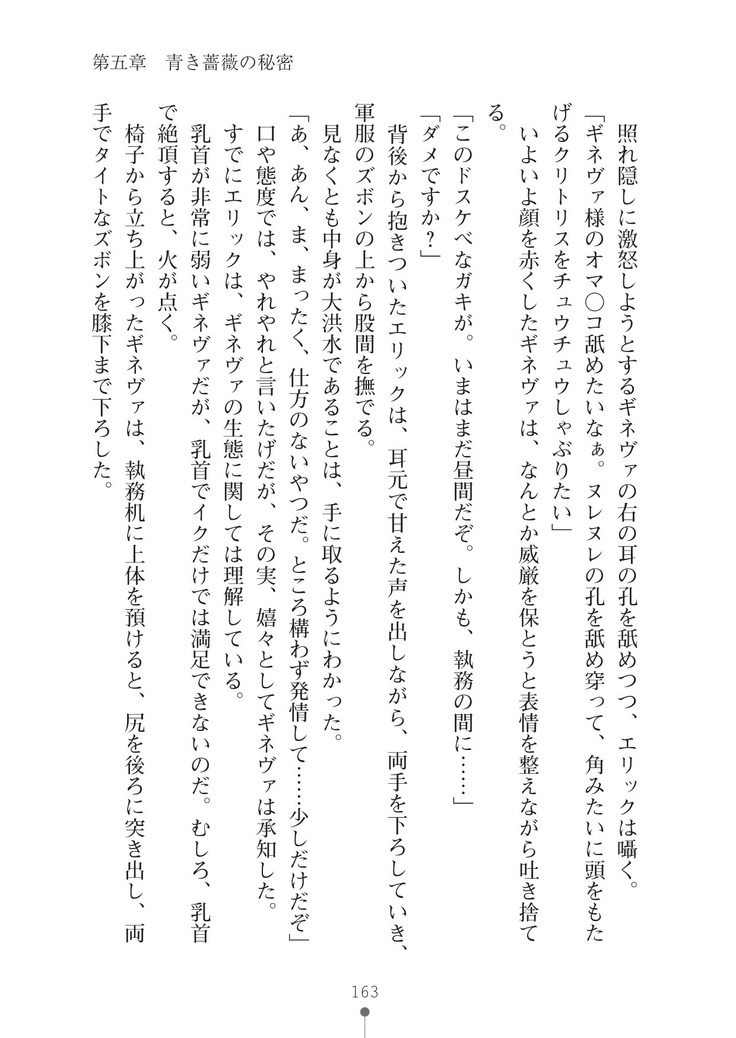 第五章　青き薔薇の秘密
照れ隠しに激怒しようとするギネヴァの右の耳の孔を舐めつつ、エリックは囁く。
「ギネヴァ様のオマ〇コ舐めたいなぁ。ヌレヌレの孔を舐め穿って、角みたいに頭をもた
げるクリトリスをチュウチュウしゃぶりたい」
いよいよ顔を赤くしたギネヴァは、なんとか威厳を保とうと表情を整えながら吐き捨て
る。
「このドスケベなガキが。いまはまだ昼間だぞ。しかも、執務の間に……」
「ダメですか？」
背後から抱きついたエリックは、耳元で甘えた声を出しながら、両手を下ろしていき、
軍服のズボンの上から股間を撫でる。
見なくとも中身が大洪水であることは、手に取るようにわかった。
「あ、あん、ま、まったく、仕方のないやつだ。ところ構わず発情して……少しだけだぞ」
口や態度では、やれやれと言いたげだが、その実、嬉々としてギネヴァは承知した。
すでにエリックは、ギネヴァの生態に関しては理解している。
乳首が非常に弱いギネヴァだが、乳首でイクだけでは満足できないのだ。むしろ、乳首
で絶頂すると、火が点く。
椅子から立ち上がったギネヴァは、執務机に上体を預けると、尻を後ろに突き出し、両
手でタイトなズボンを膝下まで下ろした。
163